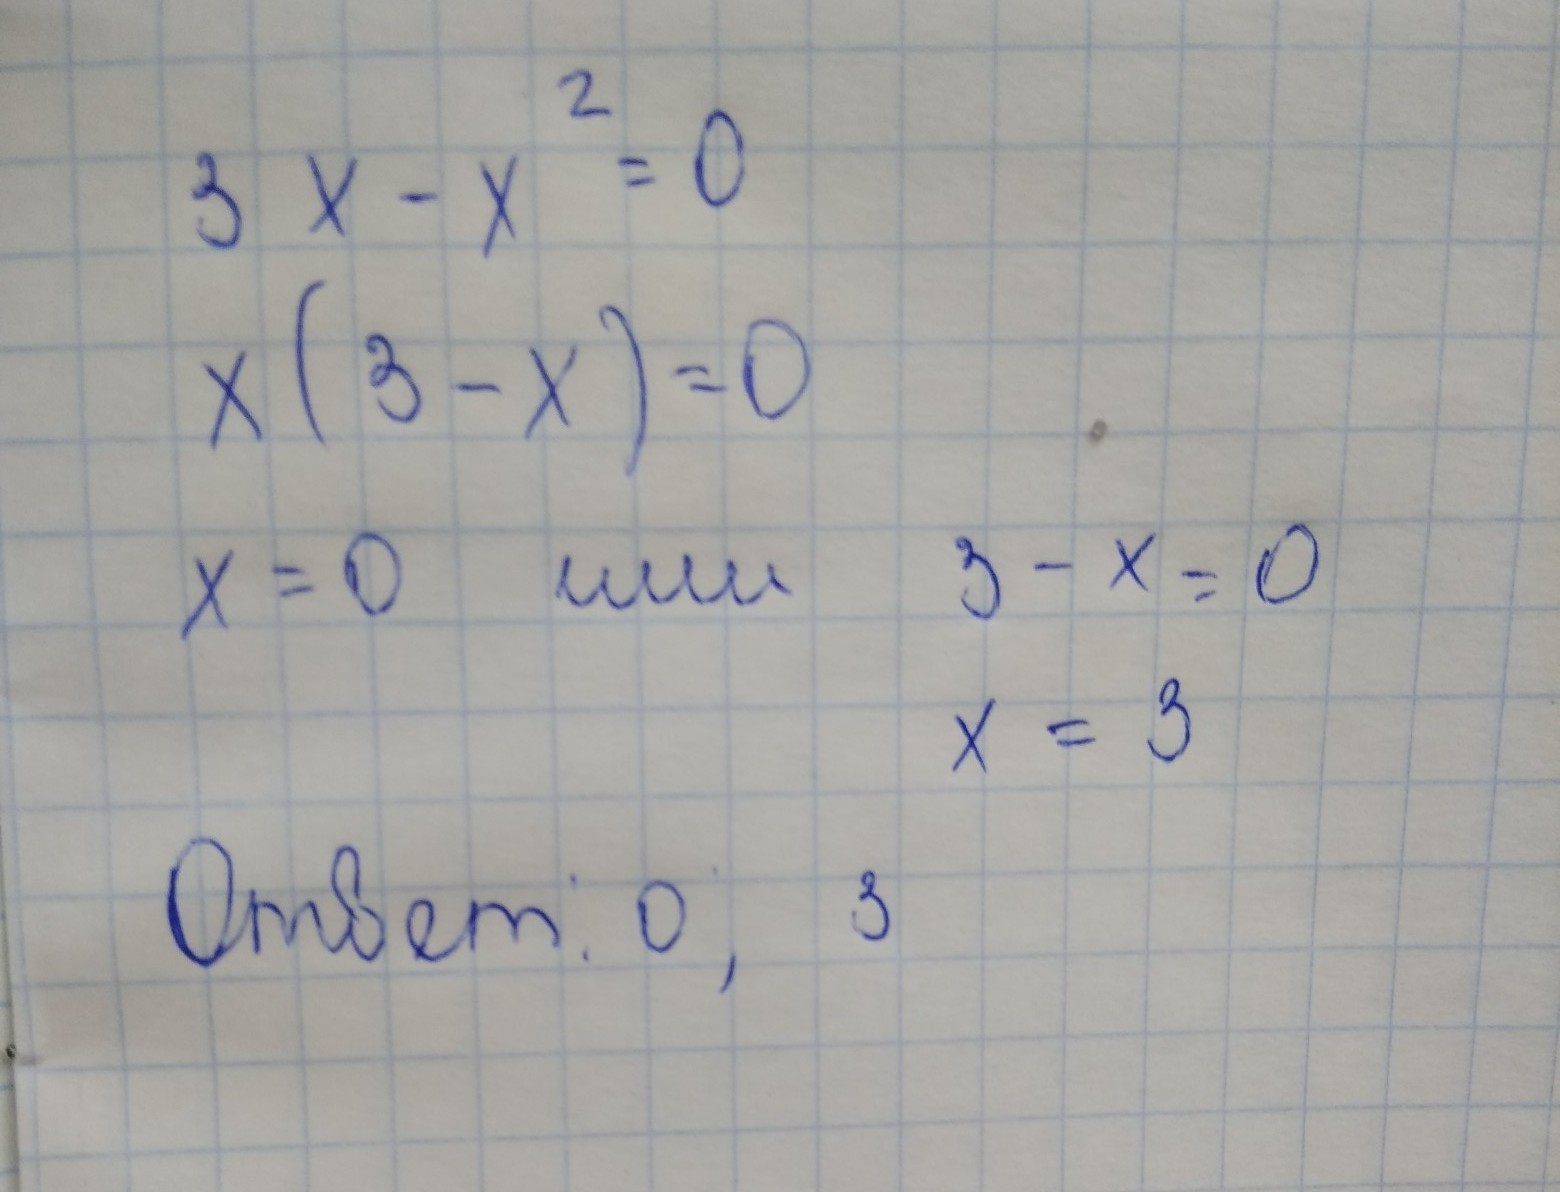 3x - x² = 0
x(3 - x) = 0
x = 0 или 3 - x = 0
x = 3
Ответ: 0, 3